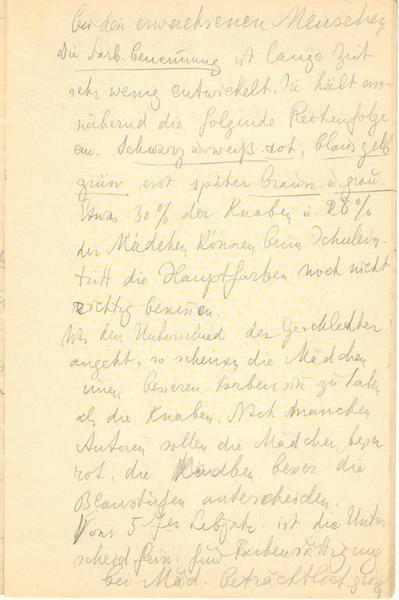 bei den erwachsenen Menschen
Die Farb. benennung ist lange Zeit
sehr wenig entwickelt. Sie hält an-
nähernd die folgende Reihenfolge
ein. Schwarz u. weiß rot, blau gelb
grün erst später braun u. grau.
Etwas 30% der Knaben u. 20%
der Mädchen können beim Schulein-
tritt die Hauptfarben noch nicht
richtig benennen.
Was den Unterschied der Geschlechter
angeht, so scheinen die Mädchen
einen besseren Farbensinn zu haben
als die Knaben. Nach manchen
Autoren sollen die Mädchen besser
rot, die Knaben besser die
Blaustufen unterscheiden.
Vom 5 Jen Lebjahr. ist die Unter-
scheid für Farbensättigung
bei Mäd. beträchtlich